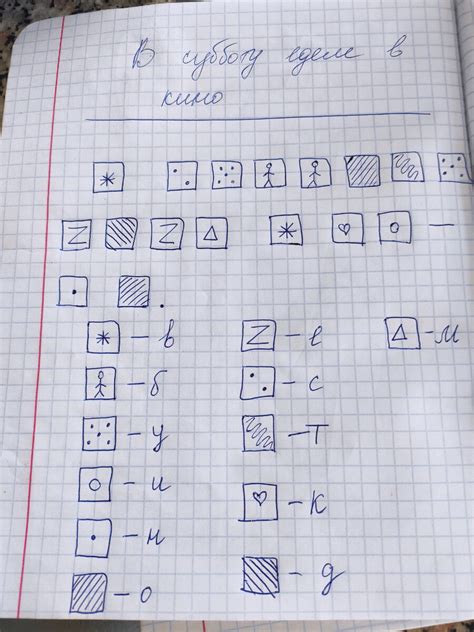 В субботу едем в
кино
— в
— е
— м
— б
— с
— у
— т
— и
— к
— н
— о
— д